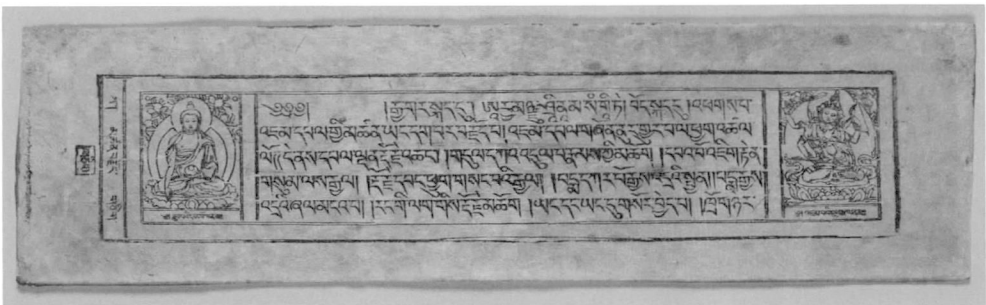 ༄༅༅། །རྒྱ་གར་སྐད་དུ། ཨཱརྱམཉྫུཤྲཱིནཱམསཾགཱིཏི། བོད་སྐད་དུ། འཕགས་པ་
འཇམ་དཔལ་གྱི་མཚན་ཡང་དག་པར་བརྗོད་པ། འཇམ་དཔལ་གཞོན་ནུར་གྱུར་པ་ལ་ཕྱག་འཚལ་
ལོ།། དེ་ནས་དཔལ་ལྡན་རྡོ་རྗེ་འཆང་། །གདུལ་དཀའ་འདུལ་བ་རྣམས་ཀྱི་མཆོག །དཔའ་བོ་འཇིག་རྟེན་
གསུམ་ལས་རྒྱལ། །རྡོ་རྗེ་དབང་ཕྱུག་གསང་བའི་རྒྱལ། །པདྨ་དཀར་པོ་རྒྱས་འདྲའི་སྤྱན། །པདྨ་རྒྱས་
འདྲའི་ཞལ་མངའ་བ། །རང་གི་ལག་གིས་རྡོ་རྗེ་མཆོག །ཡང་དང་ཡང་དུ་གསོར་བྱེད་པ། །ཁྲོ་གཉེར་